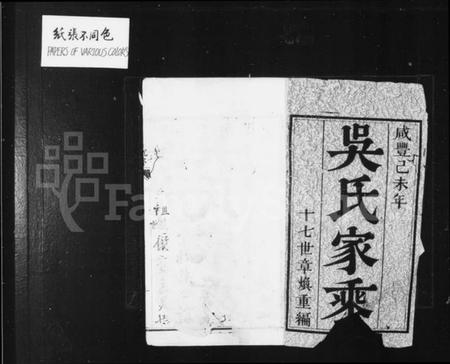 紙張不同色
PAPERS OF VARIOUS COLORS
咸豐己未年
吳氏家乘
十七世章煥重編
祖